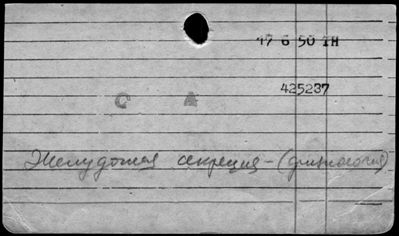 47 6 50 TH
425237
С А
Желудочная секреция - (физиология)